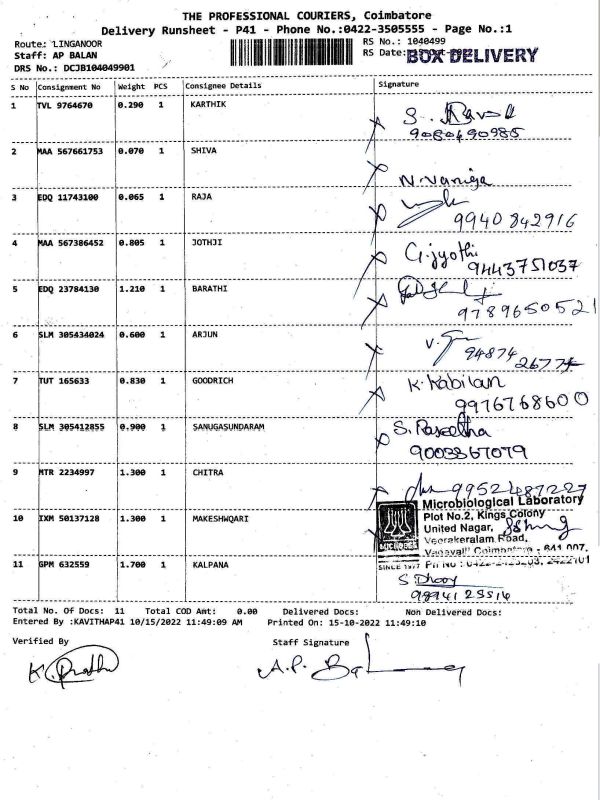 THE PROFESSIONAL COURIERS, Coimbatore
Delivery Runsheet - P41 - Phone No.:0422-3505555 - Page No.:1
Route: LINGANOOR
Staff: AP BALAN
DRS No.: DCJB104049901
RS No.: 1040499
RS Date:
BOX DELIVERY
S No Consignment No Weight PCS Consignee Details Signature
1 TVL 9764670 0.290 1 KARTHIK
9080490985
2 MAA 567661753 0.070 1 SHIVA
N. Vanija
3 EDQ 11743100 0.065 1 RAJA
9940 842916
4 MAA 567386452 0.805 1 JOTHJI
G. jyothi
9443751037
5 EDQ 23784130 1.210 1 BARATHI
9789650521
6 SLM 305434024 0.600 1 ARJUN
94874
26774
7 TUT 165633 0.830 1 GOODRICH
K. Kabilan
9976768600
8 SLM 305412855 0.900 1 SANUGASUNDARAM
9003367079
9 MTR 2234997 1.300 1 CHITRA
9952487227
10 IXM 50137128 1.300 1 MAKESHWQARI
Microbiological Laboratory
Plot No.2, Kings Colony
United Nagar,
Veerakeralam Road,
Coimbatore - 641 007.
SINCE 1977
11 GPM 632559 1.700 1 KALPANA
9894123514
Total No. Of Docs: 11 Total COD Amt: 0.00 Delivered Docs: Non Delivered Docs:
Entered By :KAVITHAP41 10/15/2022 11:49:09 AM Printed On: 15-10-2022 11:49:10
Verified By Staff Signature